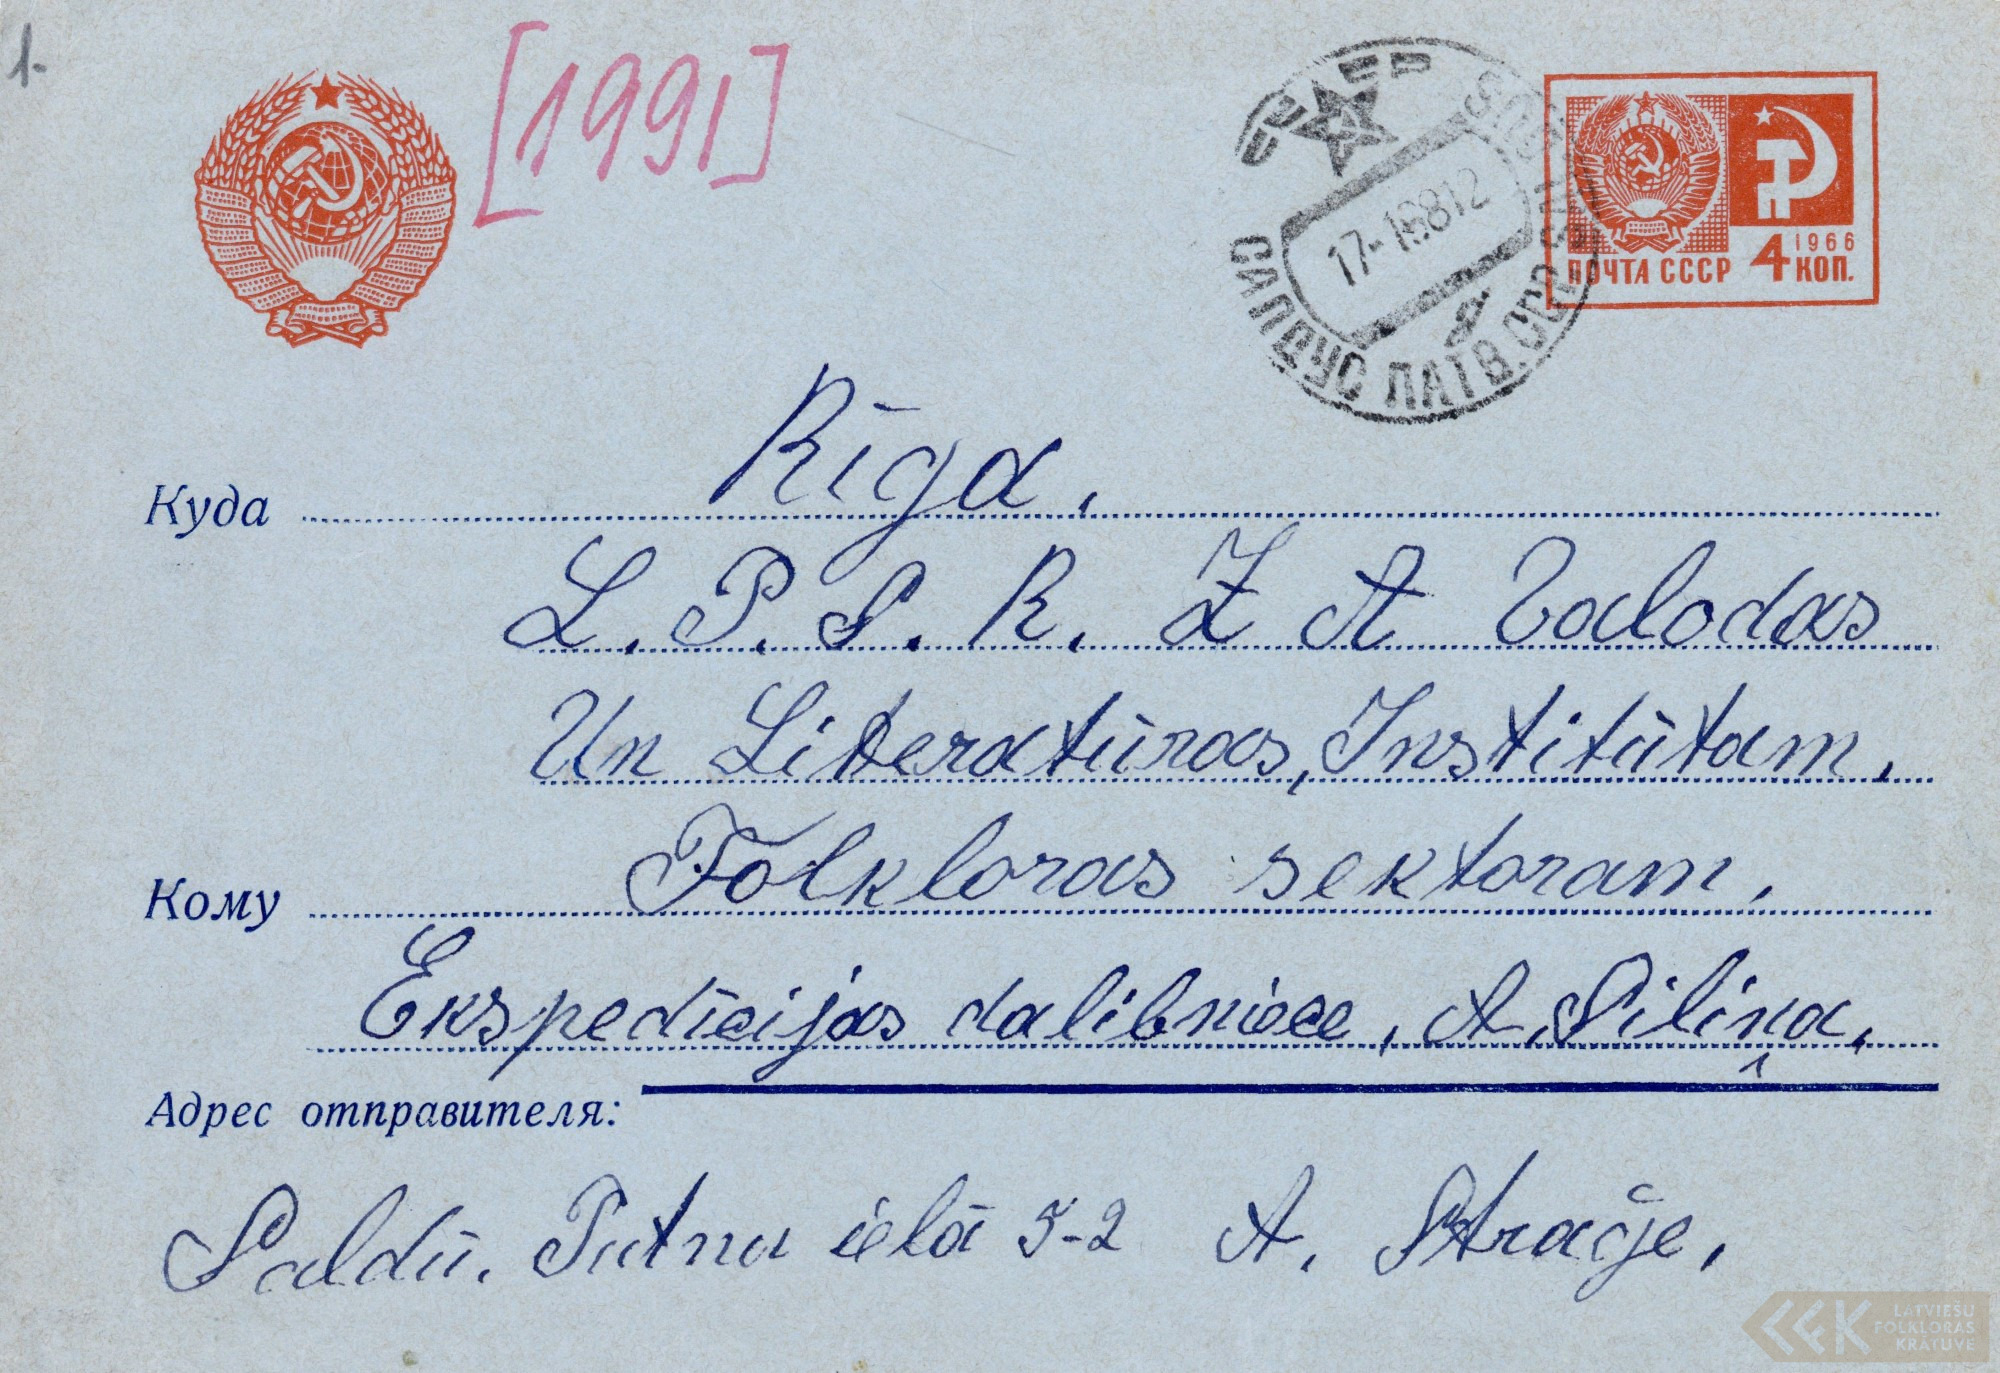 1.
[1991]
САЛДУС ЛАТВ. ССР
SALDUS
17-1-6812
ПОЧТА СССР 4 1966 КОП.
Rīga,
Куда
L. P. S. R. Z A Valodas
Un Literatūras, Institūtam,
Folkloras sektoram,
Кому
Ekspedīcijas dalibniece, A. Siliņa,
Адрес отправителя:
Saldū. Putnu ielā 5-2 A. Stračje,
LATVIEŠU
FOLKLORAS
KRĀTUVE